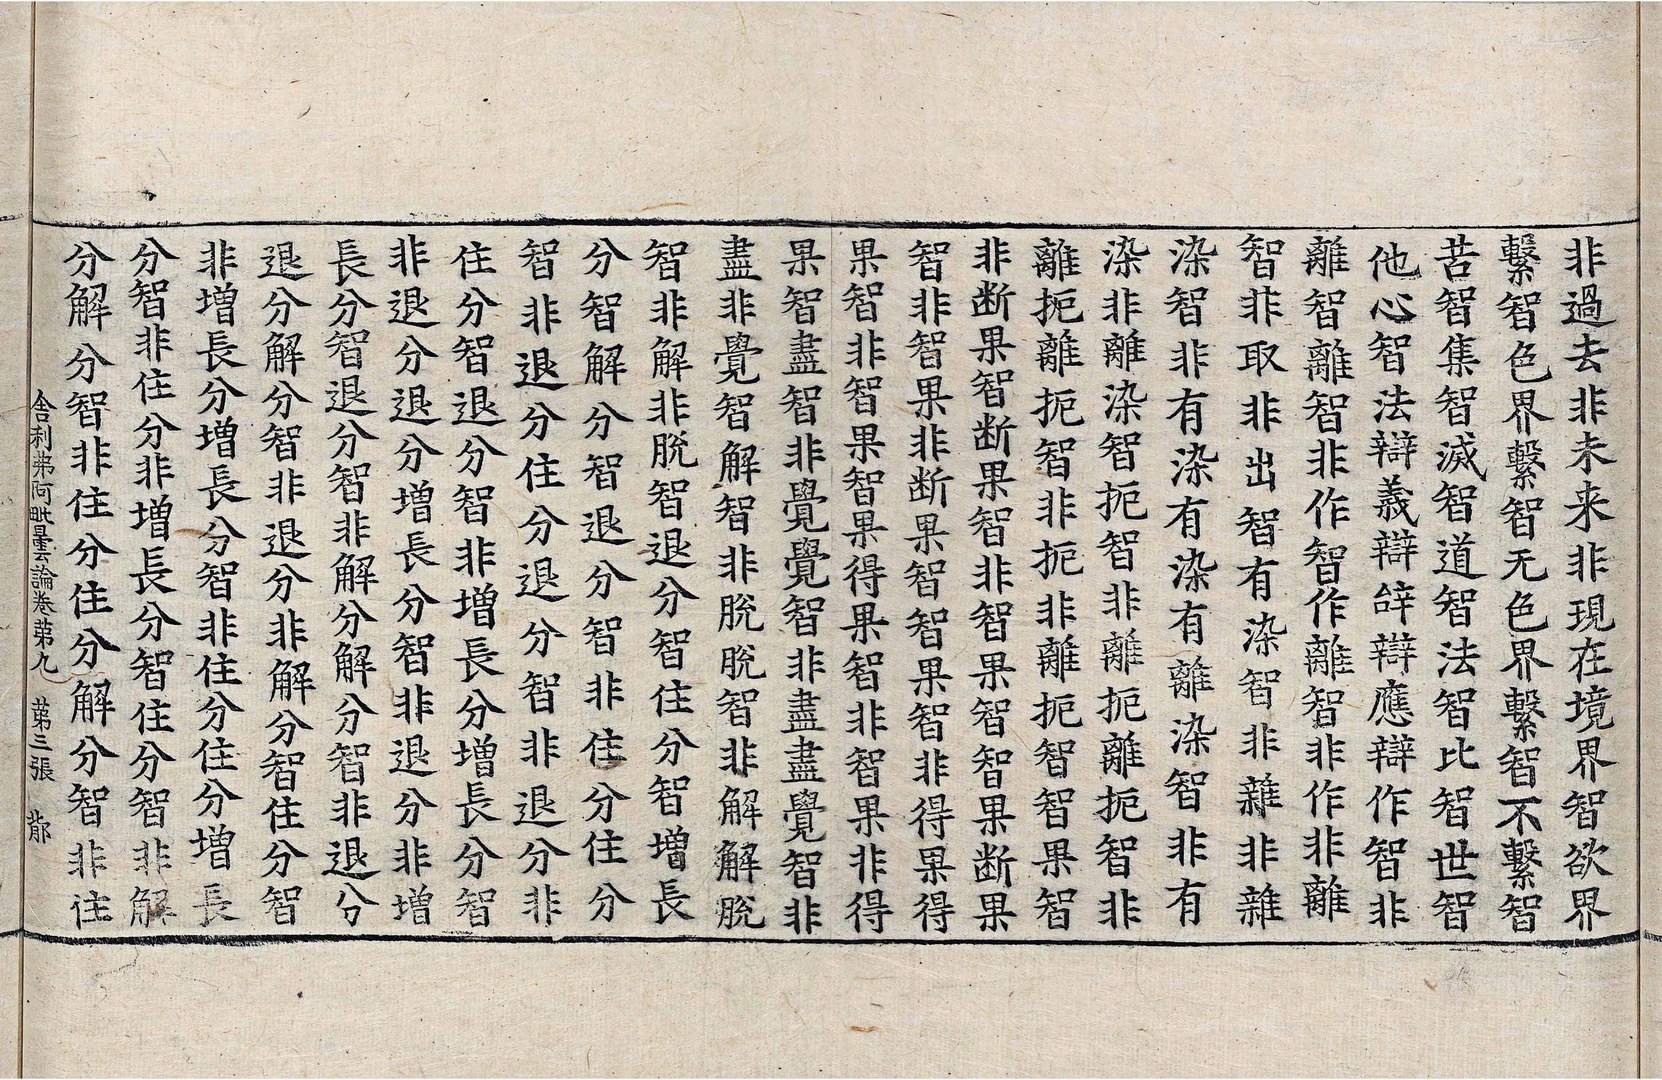 非過去非未来非現在境界智欲界
繫智色界繫智无色界繫智不繫智
苦智集智滅智道智法智比智世智
他心智法辯義辯辝辯應辯作智非
離智離智非作智作離智非作非離
智非取非出智有染智非雜非雜
染智非有染有染有離染智非有
染非離染智扼智非離扼離扼智非
離扼離扼智非扼非離扼智智果智
非断果智断果智非智果智智果断果
智非智果非断果智智果智非得果得
果智非智果智果得果智非智果非得
果智盡智非覺覺智非盡盡覺智非
盡非覺智解智非脫脫智非解解脫
智非解非脫智退分智住分智增長
分智解分智退分智非住分住分
智非退分住分退分智非退分非
住分智退分智非增長分增長分智
非退分退分增長分智非退分非增
長分智退分智非解分解分智非退分
退分解分智非退分非解分智住分智
非增長分增長分智非住分住分增長
分智非住分非增長分智住分智非解
分解分智非住分住分解分智非住
舍利弗阿毗曇論卷第九 第三張 邶